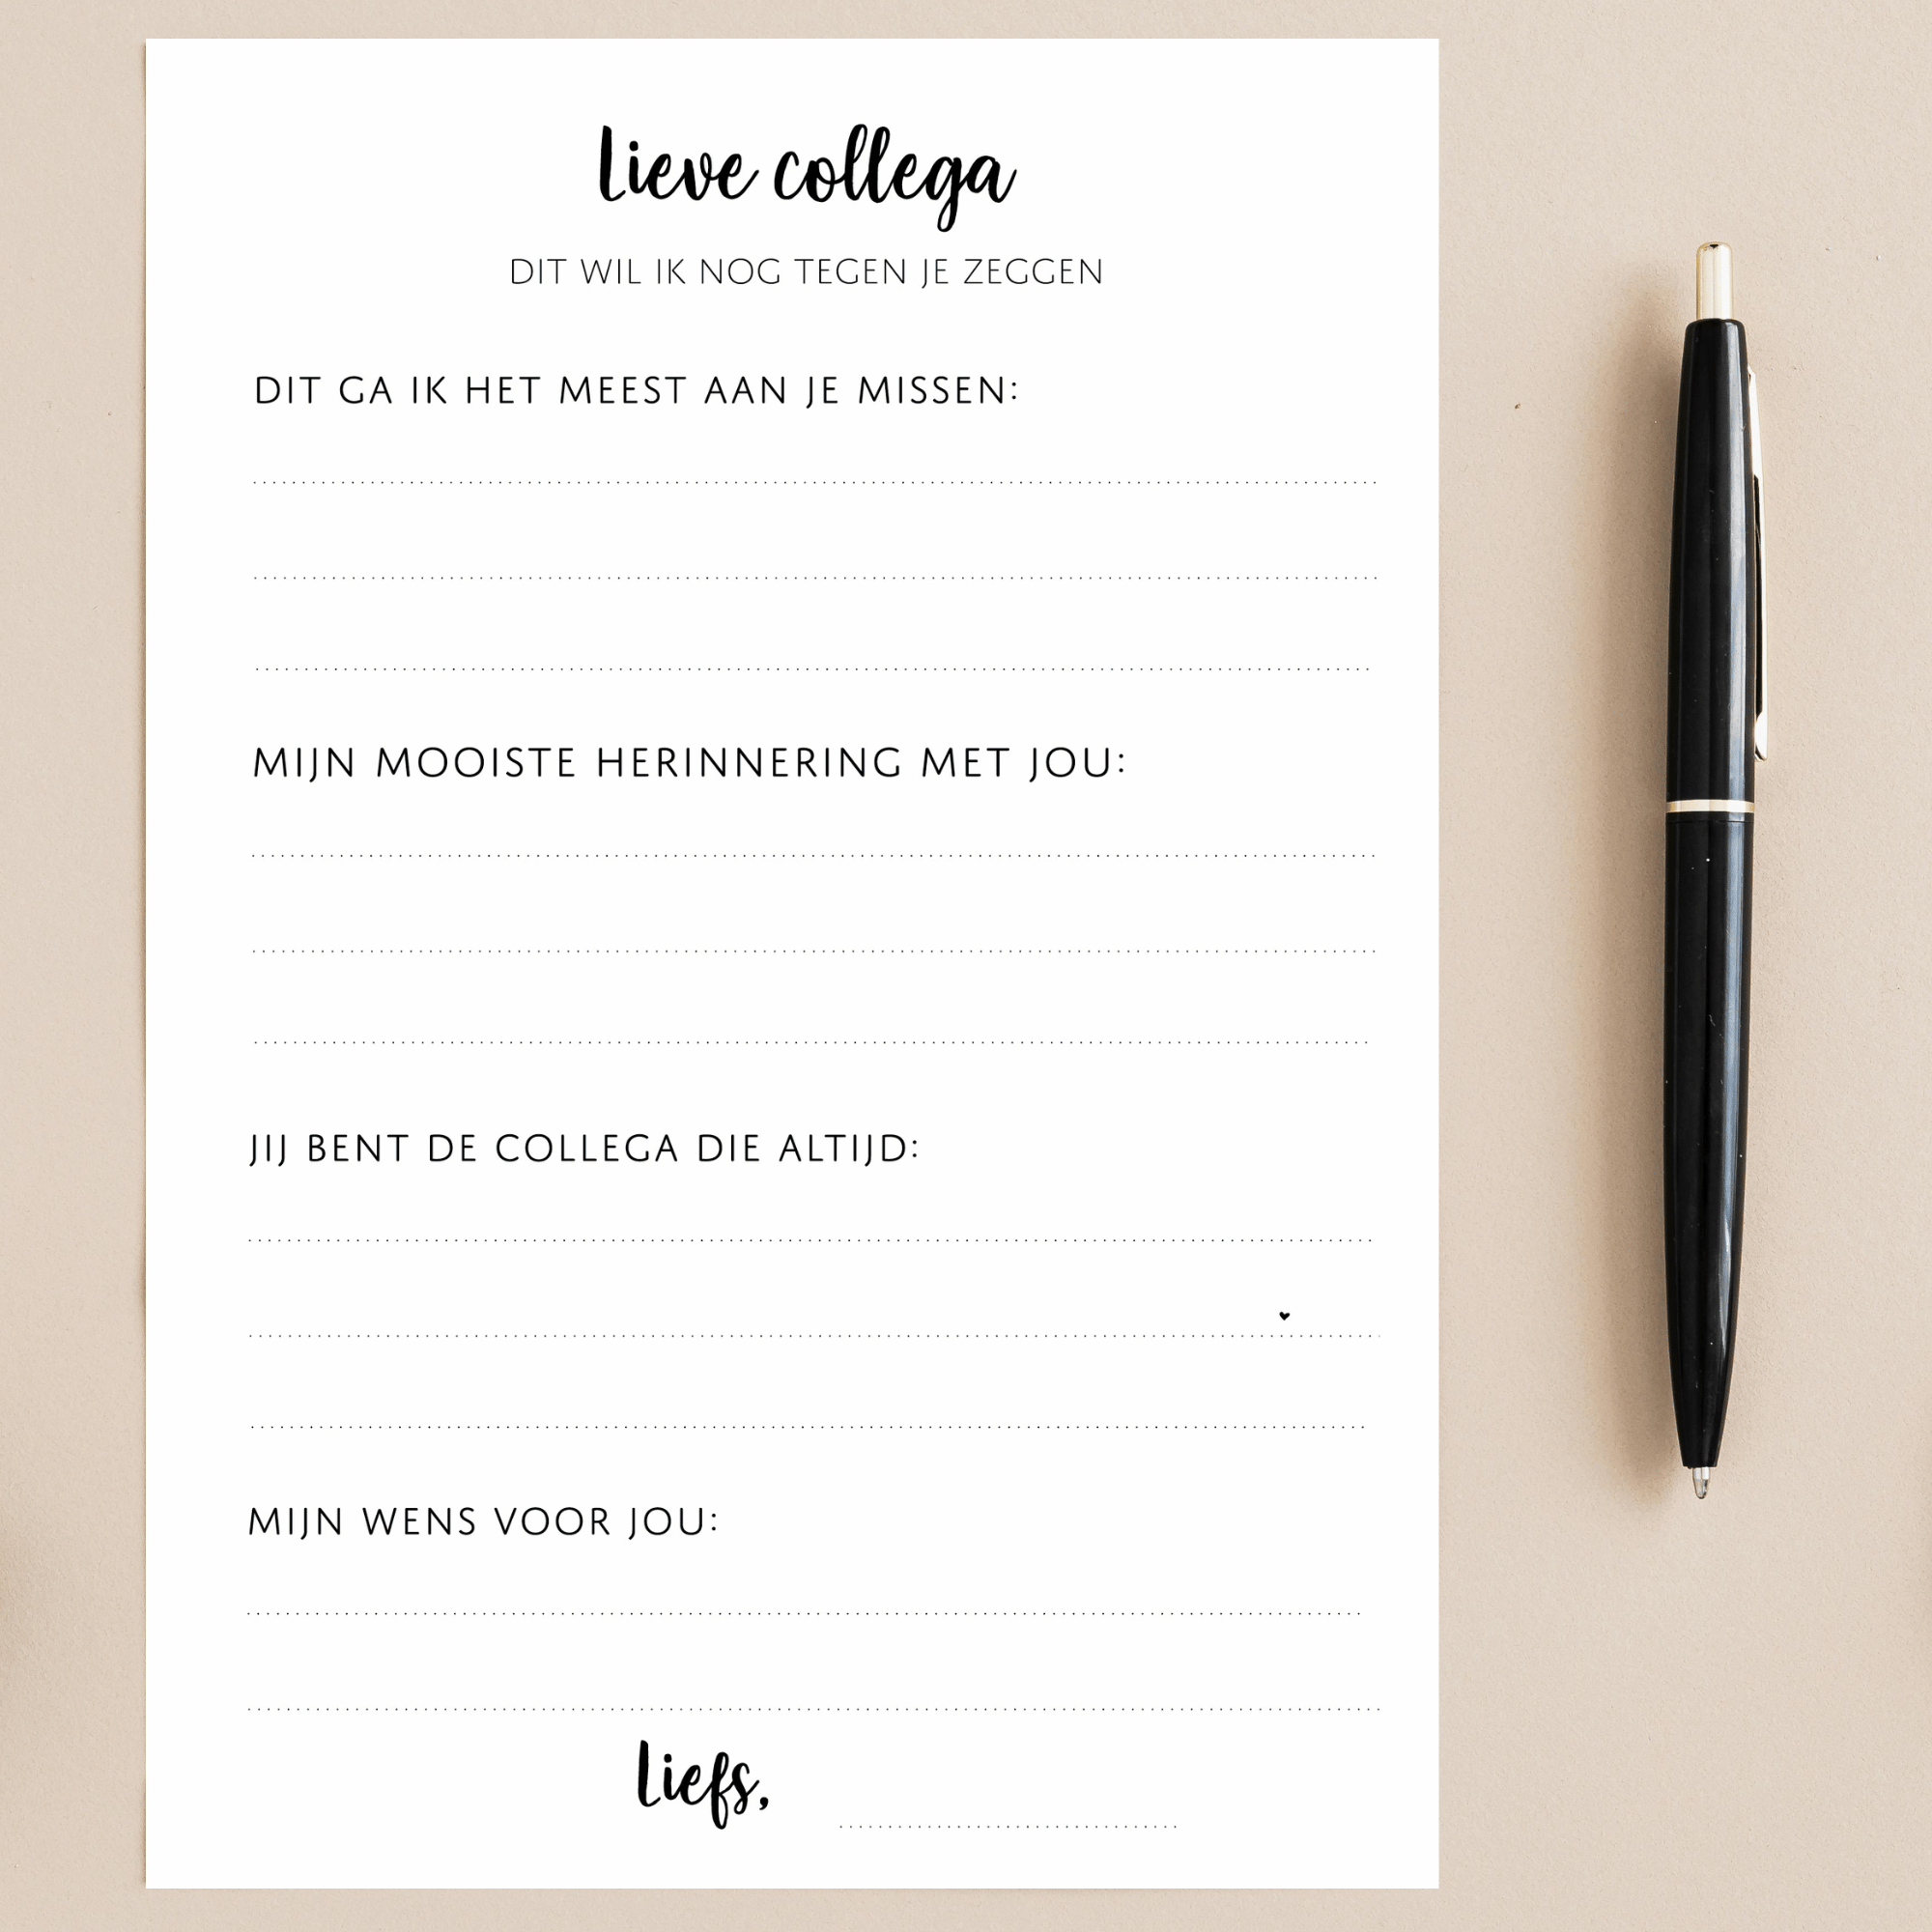 Lieve collega
DIT WIL IK NOG TEGEN JE ZEGGEN
DIT GA IK HET MEEST AAN JE MISSEN:
MIJN MOOISTE HERINNERING MET JOU:
JIJ BENT DE COLLEGA DIE ALTIJD:
MIJN WENS VOOR JOU:
Liefs,